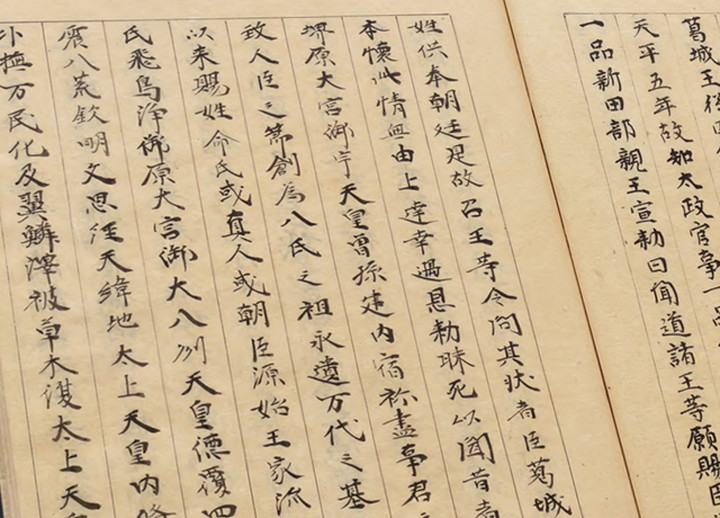 葛城王從
天平五年故知太政官事一品
一品新田部親王宣勅曰聞道諸王等願賜臣
姓供奉朝廷是故召王等令問其状者臣葛城
本懐此情無由上達幸遇恩勅昧死以聞昔者
堺原大宮御宇天皇曽孫建内宿祢盡事君
致人臣之節創為八氏之祖永遺万代之基
以来賜姓命氏或真人或朝臣源始王家流
氏飛鳥浄御原大宮御大八州天皇徳覆四
震八荒欽明文思経天緯地太上天皇内脩
撫万民化及翼鱗澤被草木復太上天